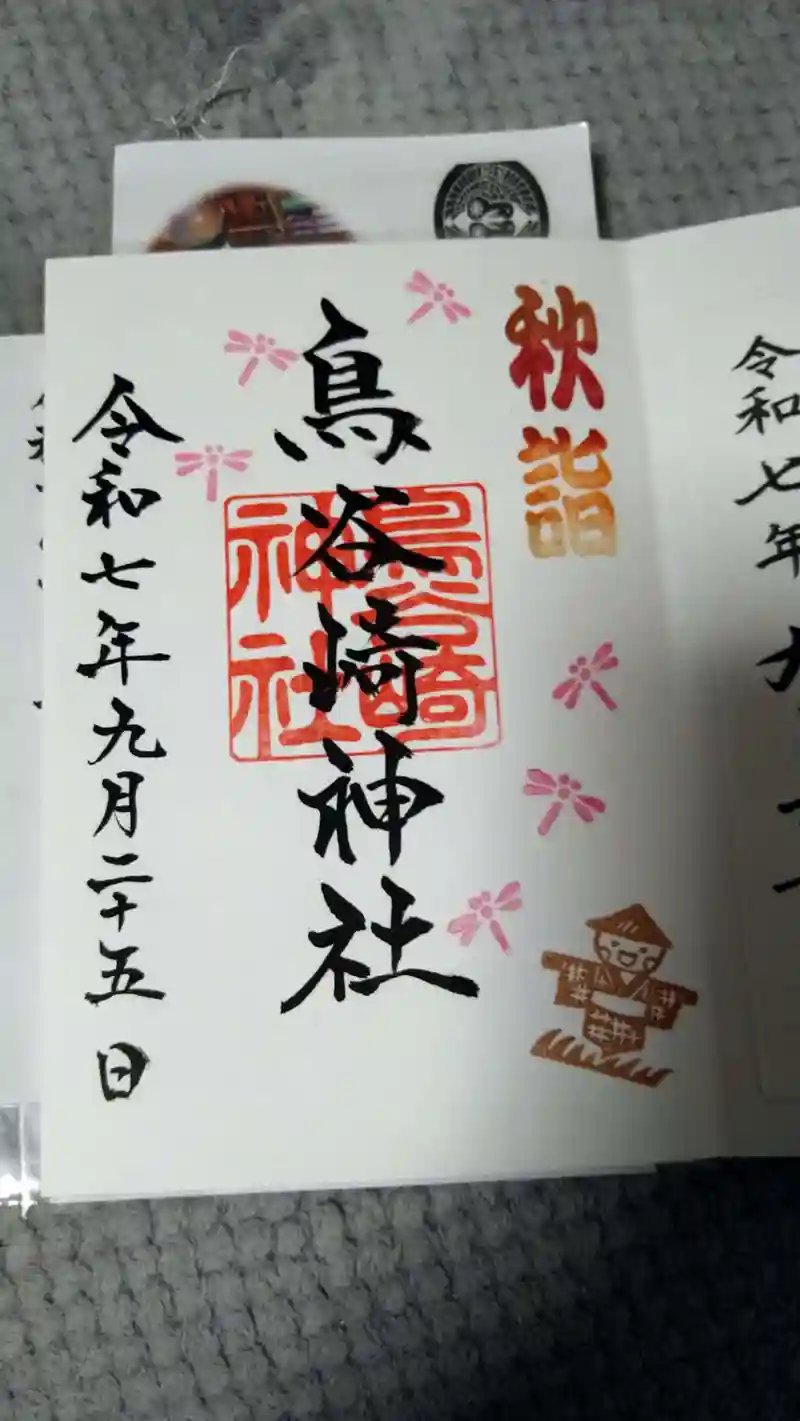 令和七年九
秋詣
鳥谷崎神社
鳥谷崎
神社
令和七年九月二十五日